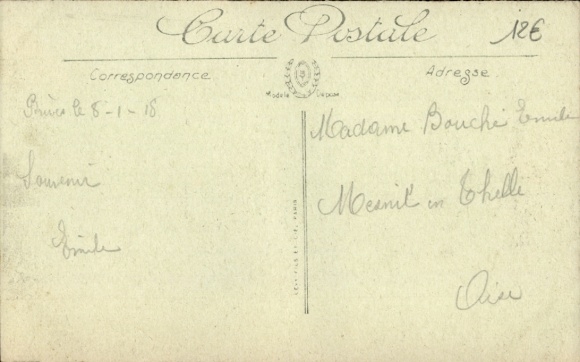 Carte Postale
12€
Correspondance
Adresse
Modèle Déposé
le 8-1-18
Madame Bouché Emile
Souvenir
Mesnil en Thelle
Emile
Oise